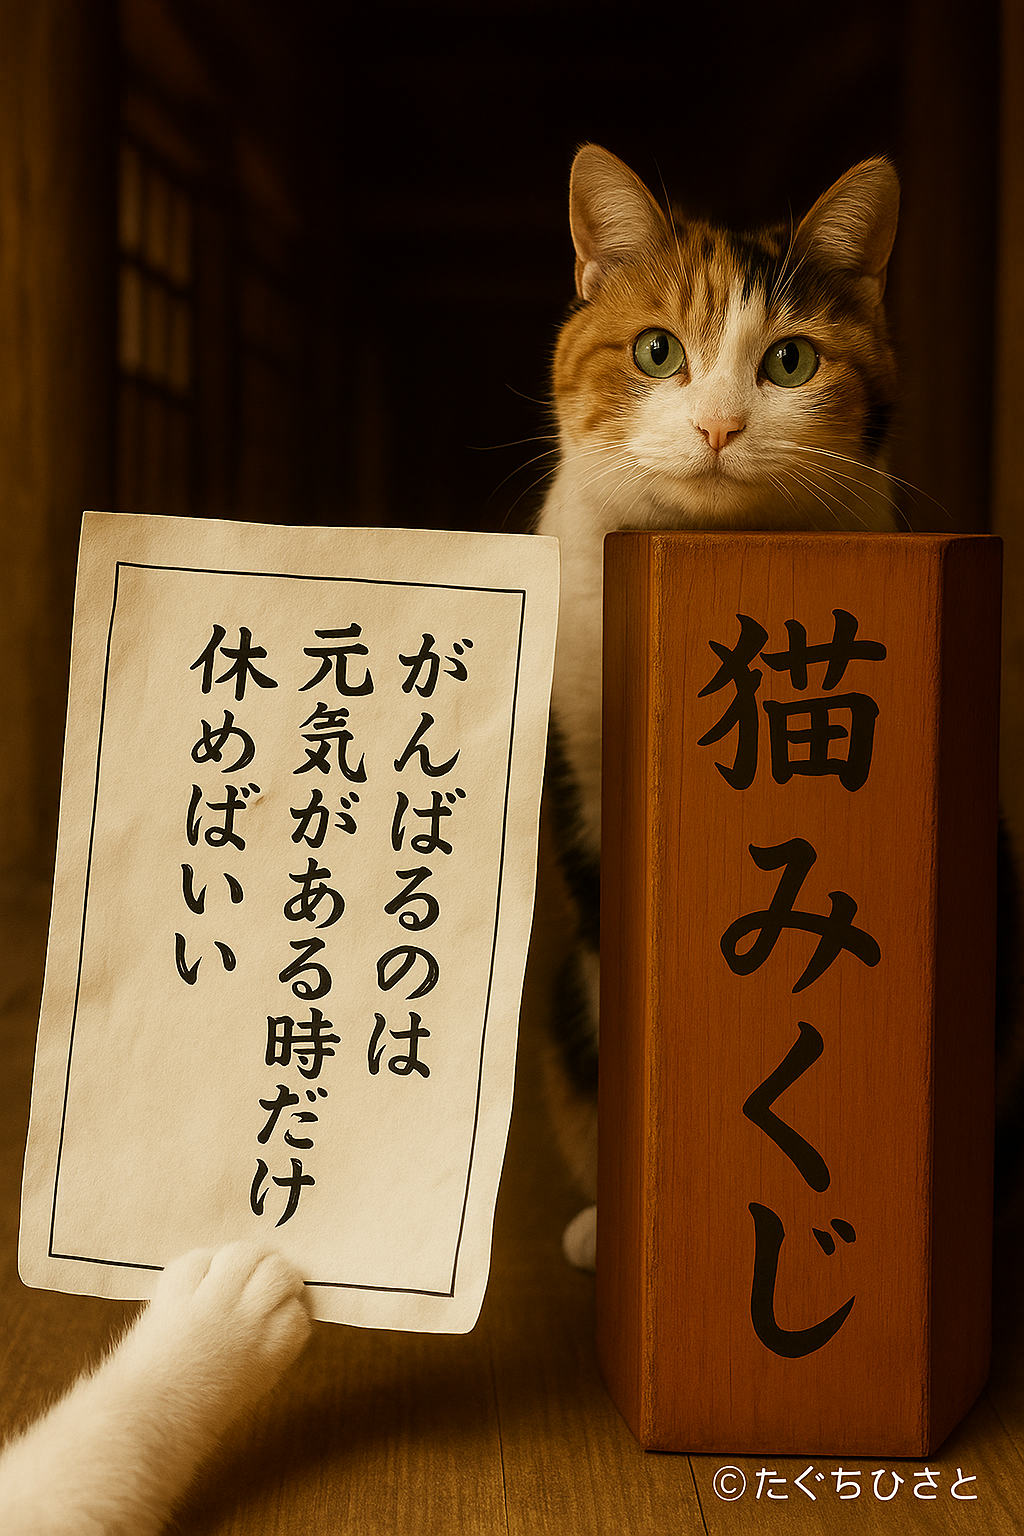 がんばるのは
元気がある時だけ
休めばいい
猫みくじ
©たぐちひさと